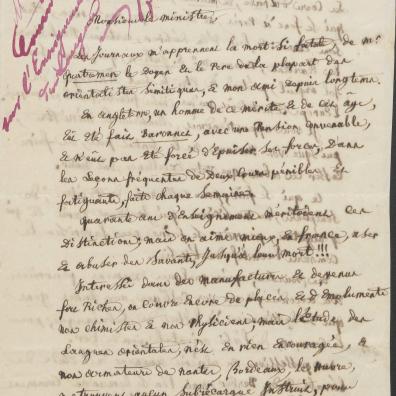 Monsieur le ministre,
Les Journaux m'apprennent la mort si fatale, de mr
quatremere le Doyen et le Pere de la plupart des
orientalistes Sémitiques, et mon ami depuis longtems.
En angleterre, un homme de ce mérite, et de cet âge,
Eut été fait Baronnet, avec une Pension convenable,
et n'eut pas été forcé d'Epuiser Ses forces, Dans
les leçons fréquentes de deux Cours pénibles et
fatiguants, faits chaque Semaine.
quarante ans d'enseignement méritoient ces
Distinctions; mais on aime mieux, en france, user
et abuser des Savants, Jusqu'à leur mort!!!
Interessé dans des manufactures et devenus
fort Riches, on couvre encore de places et d'Emoluments
nos chimistes et nos Physiciens, mais l'Etude des
langues orientales, n'est en rien encouragée, et
nos armateurs de nantes, Bordeaux, le havre,
aucun Subrécargue Instruit, pour